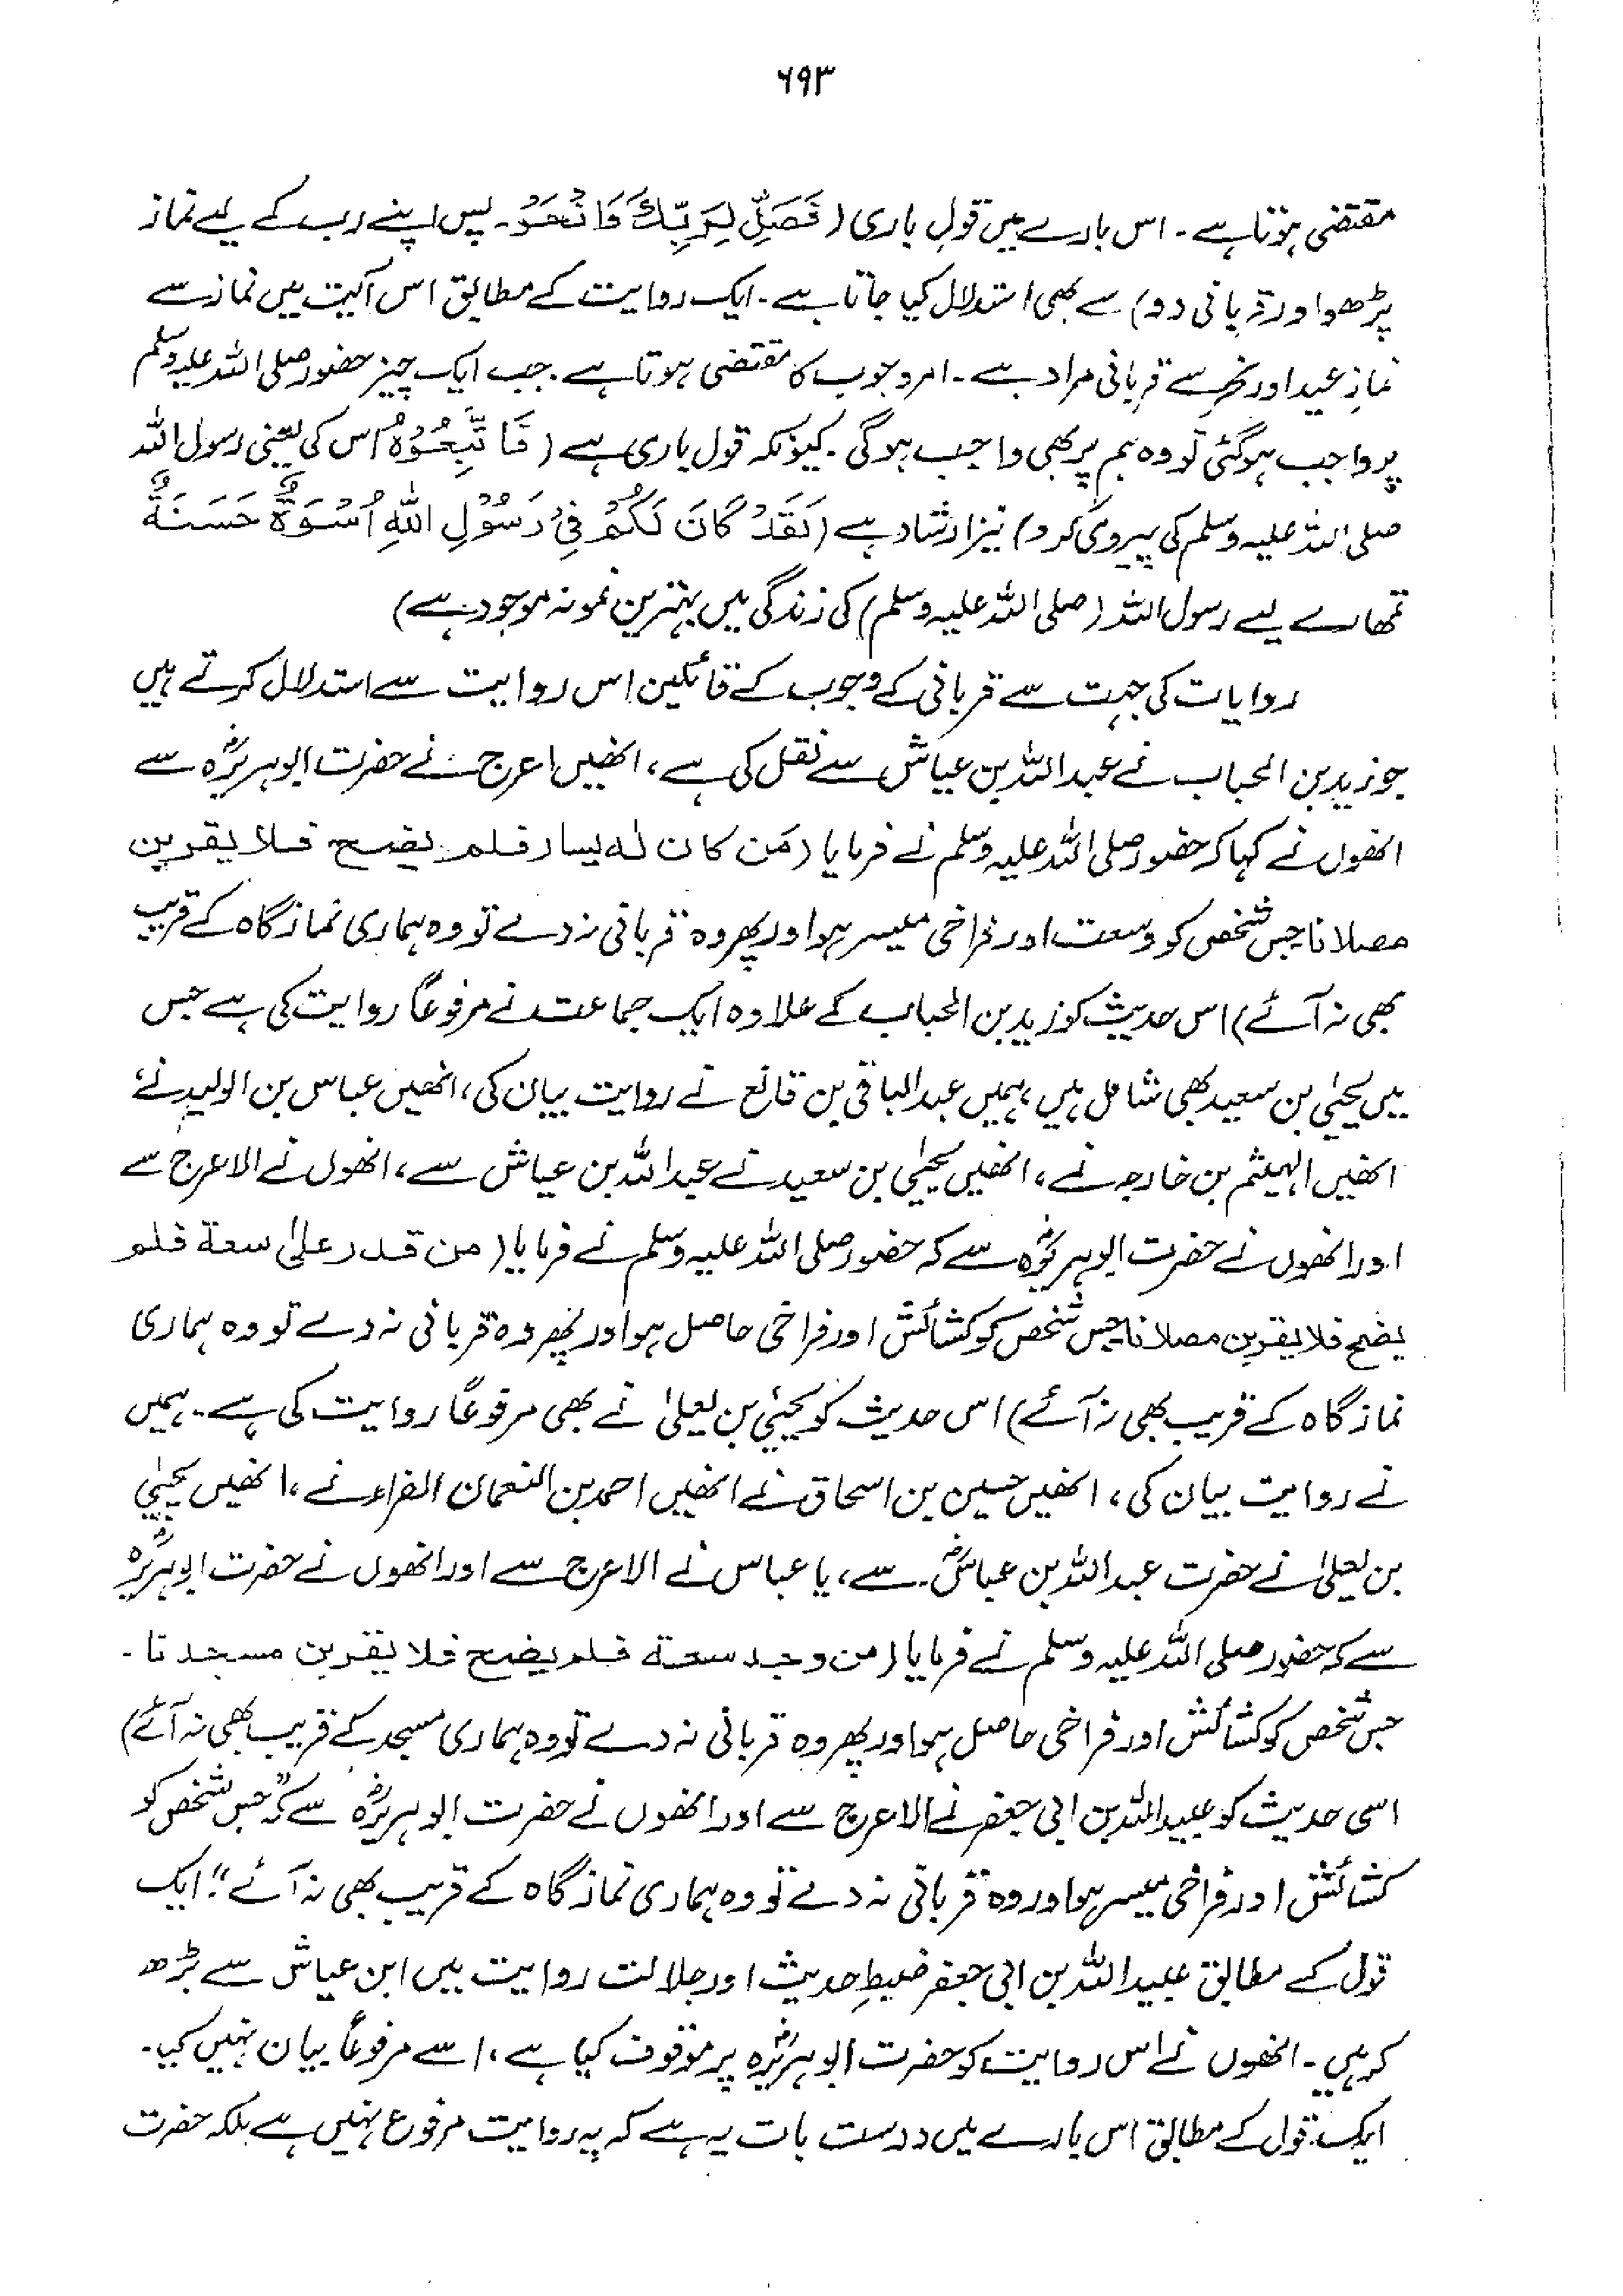 ۶۹۳
مقتضی ہوتا ہے۔ اس بارے میں قولِ باری (فَصَلِّ لِرَبِّكَ وَانْحَرْ۔ پس اپنے رب کے لیے نماز
پڑھو اور قربانی دو) سے بھی استدلال کیا جاتا ہے۔ ایک روایت کے مطابق اس آیت میں نماز سے
نمازِ عید اور نحر سے قربانی مراد ہے۔ امر وجوب کا مقتضی ہوتا ہے۔ جب ایک چیز حضور صلی اللہ علیہ وسلم
پر واجب ہوگئی تو وہ ہم پر بھی واجب ہوگی۔ کیونکہ قول باری ہے (فَاتَّبِعُوْهُ اس کی یعنی رسول اللہ
صلی اللہ علیہ وسلم کی پیروی کرو) نیز ارشاد ہے (لَقَدْ كَانَ لَكُمْ فِيْ رَسُوْلِ اللهِ اُسْوَةٌ حَسَنَةٌ
تمھارے لیے رسول اللہ (صلی اللہ علیہ وسلم) کی زندگی میں بہترین نمونہ موجود ہے)
روایات کی جہت سے قربانی کے وجوب کے قائلین اس روایت سے استدلال کرتے ہیں
جو زید بن الحباب نے عبداللہ بن عیاش سے نقل کی ہے، انھیں اعرج نے حضرت ابوہریرہؓ سے
انھوں نے کہا کہ حضور صلی اللہ علیہ وسلم نے فرمایا (مَن كان له يسار فلم يضح فلا يقربن
مصلانا جس شخص کو وسعت اور فراخی میسر ہو اور پھر وہ قربانی نہ دے تو وہ ہماری نماز گاہ کے قریب
بھی نہ آئے) اس حدیث کو زید بن الحباب کے علاوہ ایک جماعت نے مرفوعاً روایت کی ہے جس
میں یحییٰ بن سعید بھی شامل ہیں، ہمیں عبدالباقی بن قانع نے روایت بیان کی، انھیں عباس بن الولید نے
انھیں الہیثم بن خارجہ نے، انھیں یحییٰ بن سعید نے عبداللہ بن عیاش سے، انھوں نے الاعرج سے
اور انھوں نے حضرت ابوہریرہؓ سے کہ حضور صلی اللہ علیہ وسلم نے فرمایا (من قدر علیٰ سعة فلم
يضح فلا يقربن مصلانا جس شخص کو کشائش اور فراخی حاصل ہو اور پھر وہ قربانی نہ دے تو وہ ہماری
نماز گاہ کے قریب بھی نہ آئے) اس حدیث کو یحییٰ بن یعلیٰ نے بھی مرفوعاً روایت کی ہے۔ ہمیں
نے روایت بیان کی، انھیں حسین بن اسحاق نے انھیں احمد بن النعمان الفراء نے، انھیں یحییٰ
بن یعلیٰ نے حضرت عبداللہ بن عباسؓ۔ سے، یا عباس نے الاعرج سے اور انھوں نے حضرت ابوہریرہؓ
سے کہ حضور صلی اللہ علیہ وسلم نے فرمایا (من وجد سعة فلم يضح فلا يقربن مسجدنا۔
جس شخص کو کشائش اور فراخی حاصل ہو اور پھر وہ قربانی نہ دے تو وہ ہماری مسجد کے قریب بھی نہ آئے)
اسی حدیث کو عبیداللہ بن ابی جعفر نے الاعرج سے اور انھوں نے حضرت ابوہریرہؓ سے کہ "جس شخص کو
کشائش اور فراخی میسر ہو اور وہ قربانی نہ دے تو وہ ہماری نماز گاہ کے قریب بھی نہ آئے"؛ ایک
قول کے مطابق عبیداللہ بن ابی جعفر ضبطِ حدیث اور جلالت روایت میں ابن عیاش سے بڑھ
کر ہیں۔ انھوں نے اس روایت کو حضرت ابوہریرہؓ پر موقوف کیا ہے، اسے مرفوعاً بیان نہیں کیا۔
ایک قول کے مطابق اس بارے میں درست بات یہ ہے کہ یہ روایت مرفوع نہیں ہے بلکہ حضرت